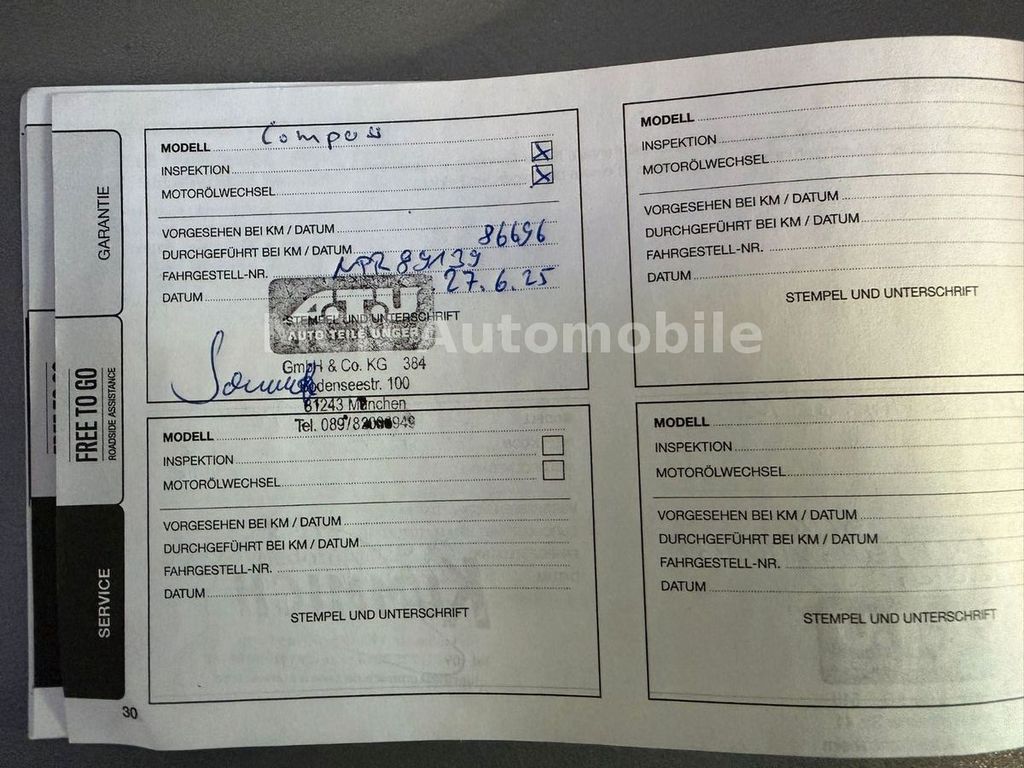 GARANTIE
FREE TO GO
ROADSIDE ASSISTANCE
SERVICE
MODELL Compass
INSPEKTION X
MOTORÖLWECHSEL X
VORGESEHEN BEI KM / DATUM
DURCHGEFÜHRT BEI KM / DATUM 86696
FAHRGESTELL-NR. NPR89139
DATUM 27.6.25
STEMPEL UND UNTERSCHRIFT
ATU
AUTO TEILE UNGER
Automobile
GmbH & Co. KG 384
Bodenseestr. 100
81243 München
Tel. 089/
MODELL
INSPEKTION
MOTORÖLWECHSEL
VORGESEHEN BEI KM / DATUM
DURCHGEFÜHRT BEI KM / DATUM
FAHRGESTELL-NR.
DATUM
STEMPEL UND UNTERSCHRIFT
30
MODELL
INSPEKTION
MOTORÖLWECHSEL
VORGESEHEN BEI KM / DATUM
DURCHGEFÜHRT BEI KM / DATUM
FAHRGESTELL-NR.
DATUM
STEMPEL UND UNTERSCHRIFT
MODELL
INSPEKTION
MOTORÖLWECHSEL
VORGESEHEN BEI KM / DATUM
DURCHGEFÜHRT BEI KM / DATUM
FAHRGESTELL-NR.
DATUM
STEMPEL UND UNTERSCHRIFT